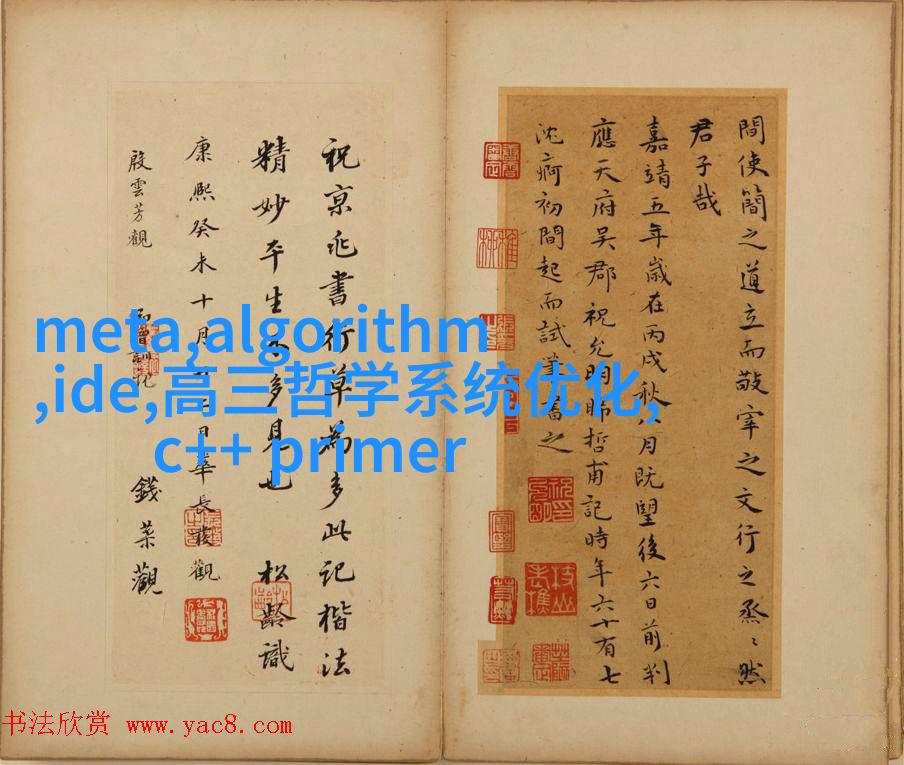 間使簡之道立而敬宰之文行之烝〻然
君子哉
嘉靖五年歲在丙戌秋八月既望後六日前判
應天府吳郡祝允明晞哲甫記時年六十有七
沈痾初間起而試筆書之
祝京兆書行草為多此記楷法
精妙平生不多見也 松齡識
康熙癸未十月二日華長發觀
殷雲芳觀 錢菜觀
meta,algorithm
,ide,高三哲学系统优化,
c++ primer
书法欣赏 www.yac8.com